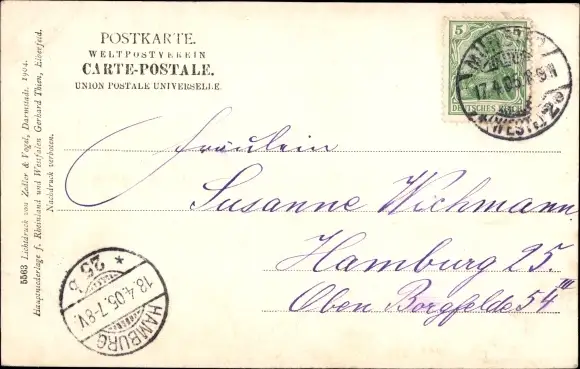 POSTKARTE.
WELTPOSTVEREIN
CARTE-POSTALE.
UNION POSTALE UNIVERSELLE.
5
DEUTSCHES REICH
17.4.05
(WESTF.)
Fräulein
Susanne Wichmann
Hamburg 25.
Oben Borgfelde 54 III
* 25 b
18.4.05.7-8V.
HAMBURG
5563 Lichtdruck von Zedler & Vogel, Darmstadt. 1904.
Hauptniederlage f. Rheinland und Westfalen Gerhard Thien, Elberfeld.
Nachdruck verboten.